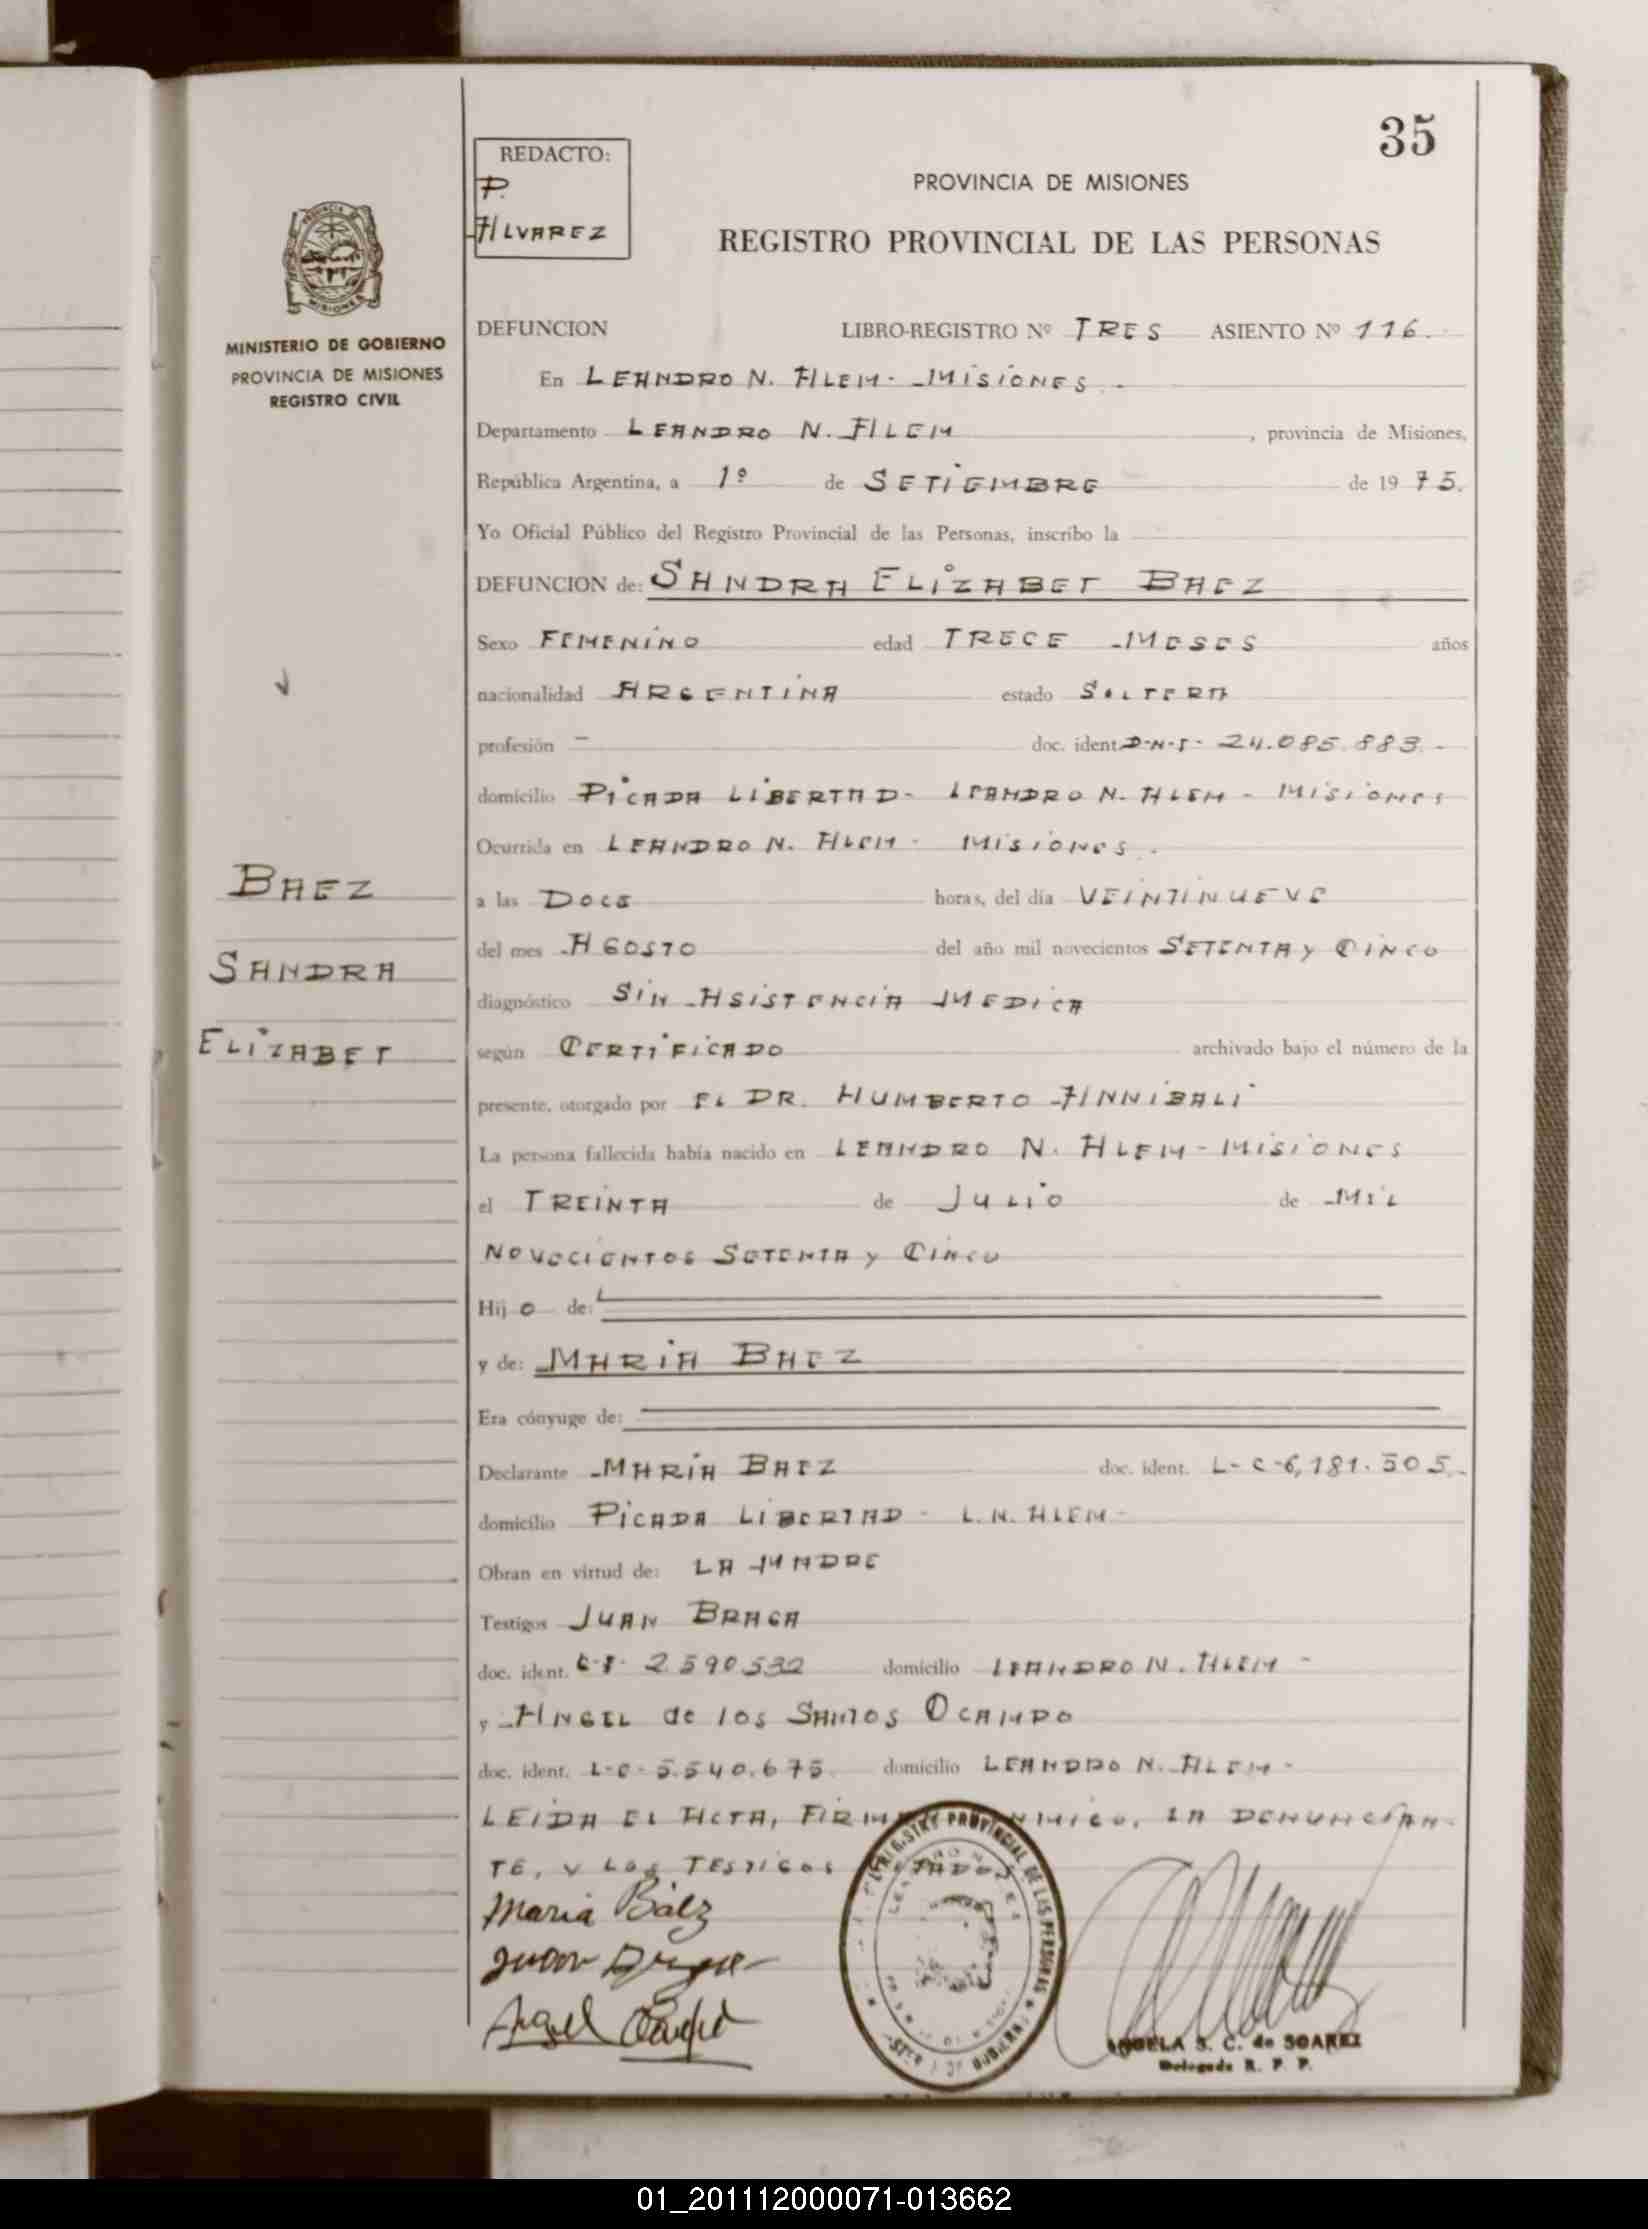 35
REDACTO:
P.
ALVAREZ
PROVINCIA DE MISIONES
REGISTRO PROVINCIAL DE LAS PERSONAS
MISIONES
MINISTERIO DE GOBIERNO
PROVINCIA DE MISIONES
REGISTRO CIVIL
DEFUNCION LIBRO-REGISTRO Nº TRES ASIENTO Nº 116.
En LEANDRO N. ALEM - MISIONES. -
Departamento LEANDRO N. ALEM , provincia de Misiones,
República Argentina, a 1º de SETIEMBRE de 1975.
Yo Oficial Público del Registro Provincial de las Personas, inscribo la
DEFUNCION de: SANDRA ELIZABET BAEZ
Sexo FEMENINO edad TRECE MESES años
nacionalidad ARGENTINA estado SOLTERA
profesión - doc. ident. D-N-I- 24.085.883. -
domicilio PICADA LIBERTAD - LEANDRO N. ALEM - MISIONES
Ocurrida en LEANDRO N. ALEM - MISIONES. -
BAEZ
SANDRA
ELIZABET
a las DOCE horas, del día VEINTINUEVE
del mes AGOSTO del año mil novecientos SETENTA y CINCO
diagnóstico SIN ASISTENCIA MEDICA
según CERTIFICADO archivado bajo el número de la
presente, otorgado por EL DR. HUMBERTO ANNIBALI
La persona fallecida había nacido en LEANDRO N. ALEM - MISIONES
el TREINTA de JULIO de MIL
NOVECIENTOS SETENTA y CINCO
Hijo de:
y de: MARIA BAEZ
Era cónyuge de:
Declarante MARIA BAEZ doc. ident. L-C-6,181.505. -
domicilio PICADA LIBERTAD - L.N. ALEM -
Obran en virtud de: LA MADRE
Testigos JUAN BRAGA
doc. ident. C-I- 2.590.532 domicilio LEANDRO N. ALEM -
y ANGEL de los SANTOS OCAMPO
doc. ident. L-E- 5.540.675. domicilio LEANDRO N. ALEM -
LEIDA EL ACTA, FIRMAN CONMIGO, LA DENUNCIAN-
TE, Y LOS TESTIGOS
Maria Báez
Juan Braga
Angel
ANGELA S. C. de SOAREZ
Delegada R. P. P.
01_201112000071-013662